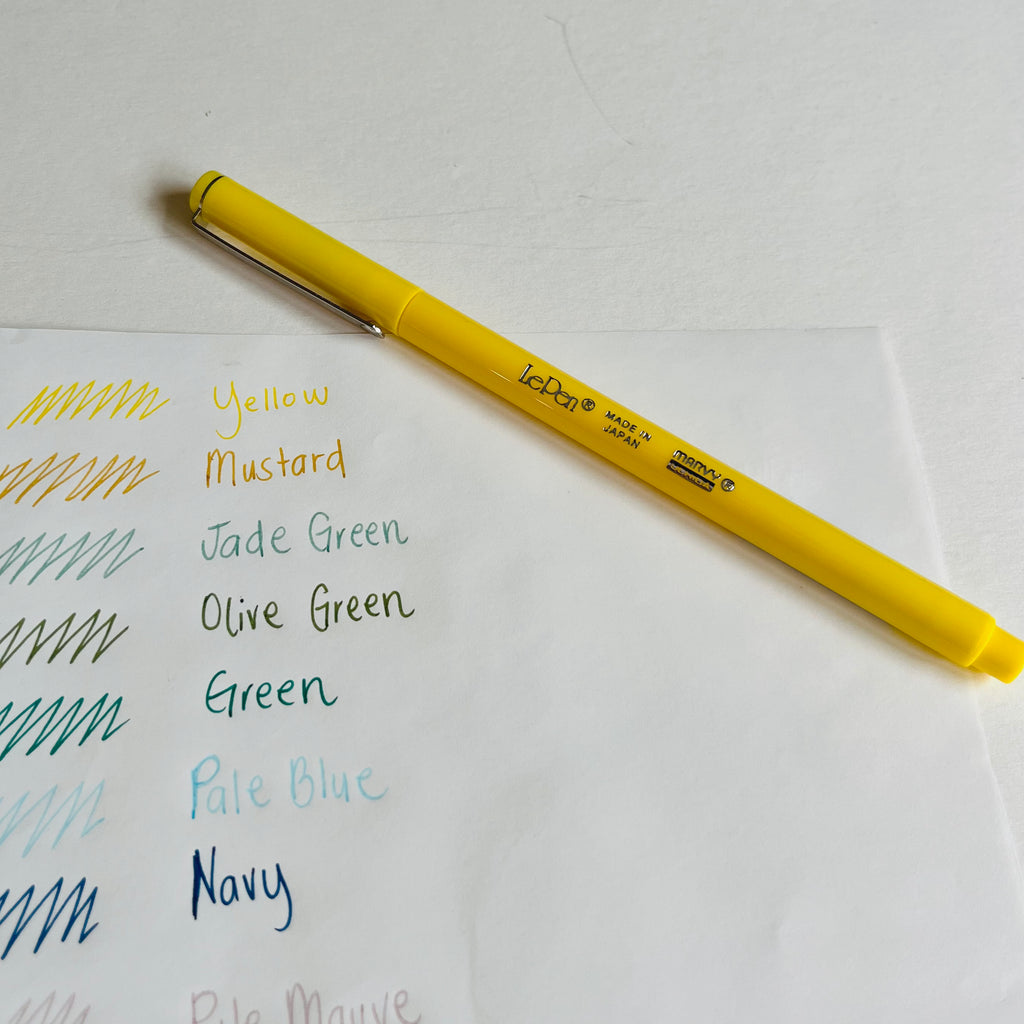 LePen®
MADE IN
JAPAN
MARVY®
Yellow
Mustard
Jade Green
Olive Green
Green
Pale Blue
Navy
Pale Mauve